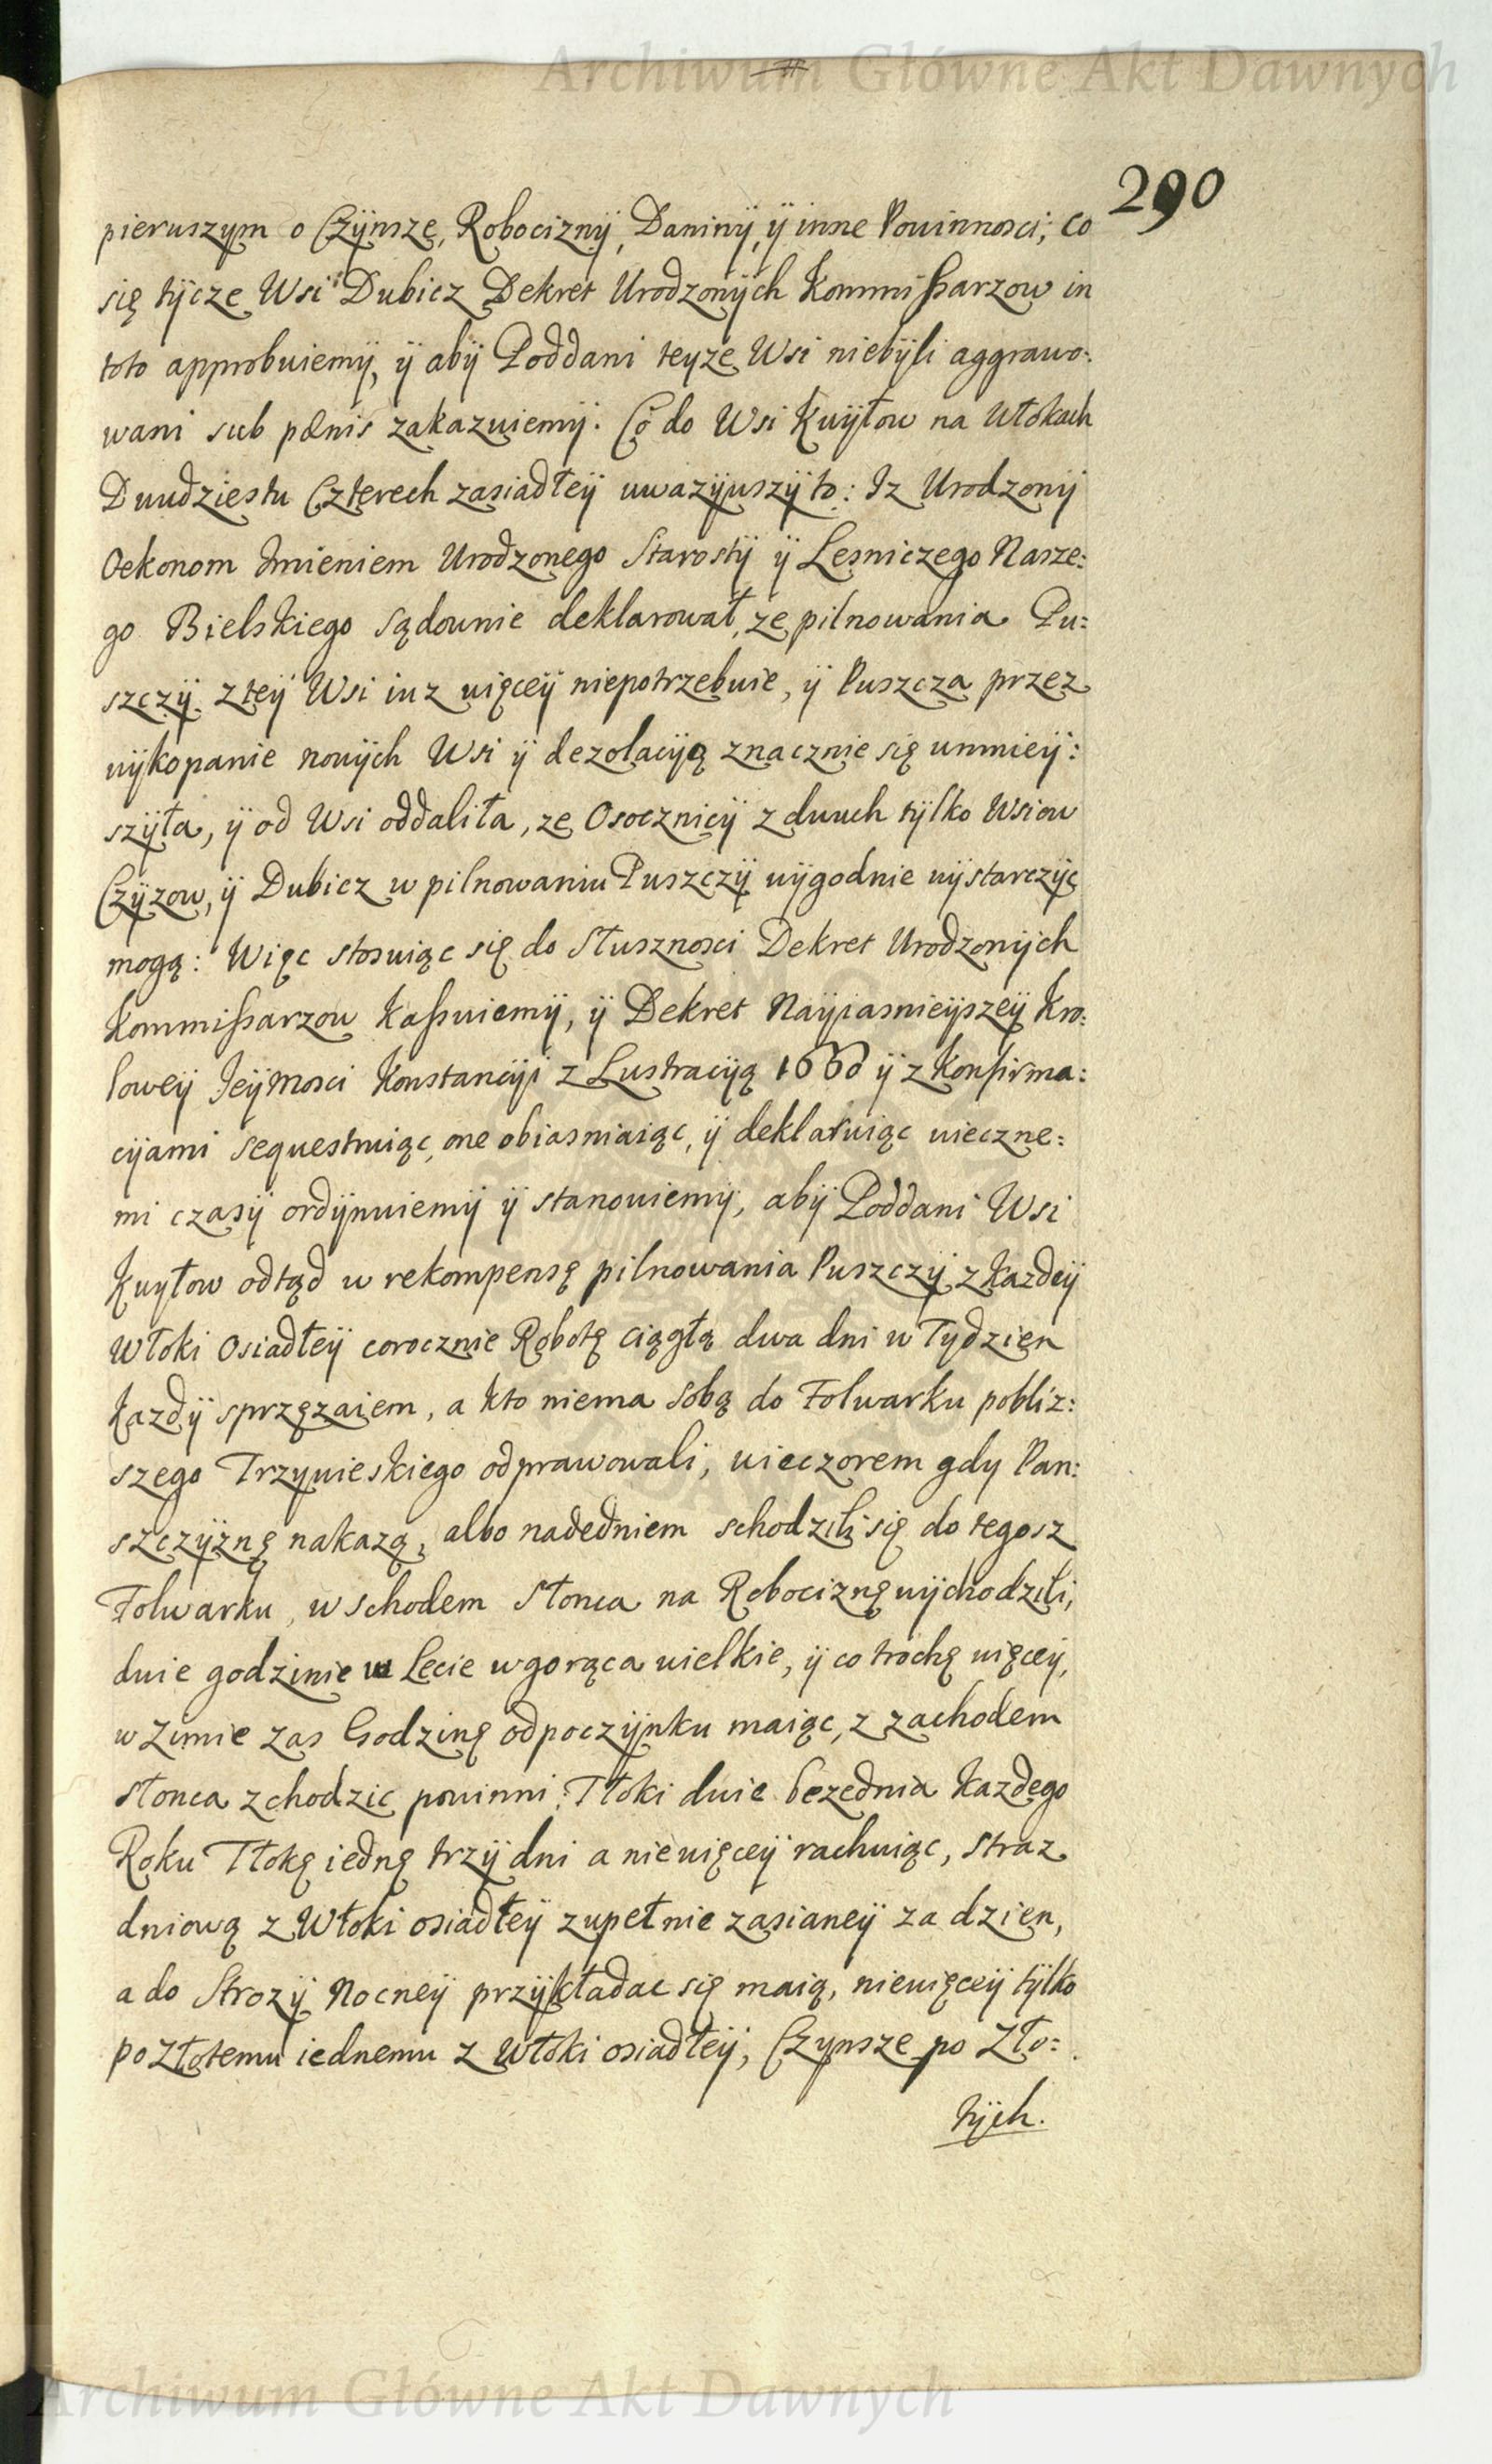 Archiwum Główne Akt Dawnych
290
pierwszym o Czÿnsze, Robociznÿ, Daninÿ, ÿ inne Powinnosci; co
się tÿcze Wsi Dubicz Dekret Urodzonÿch Kommissarzow in
toto approbuiemÿ, ÿ abÿ Poddani teyze Wsi niebÿli aggrawo:
wani sub pœnis zakazuiemÿ. Co do Wsi Kuÿłow na Włokach
Dwudziestu Czterech zasiadłeÿ uwazÿwszÿ to: Iz Urodzonÿ
Oekonom Imieniem Urodzonego Starostÿ ÿ Lesniczego Nasze:
go Bielskiego sądownie deklarował, ze pilnowania Pu:
szczÿ z teÿ Wsi iuz więceÿ niepotrzebuie, ÿ Puszcza przez
wÿkopanie nowÿch Wsi ÿ dezolacÿą znacznie się umnieÿ:
szÿła, ÿ od Wsi oddaliła, ze Osocznicÿ z dwuch tÿlko Wsiow
Czÿzow, ÿ Dubicz w pilnowaniu Puszczÿ wÿgodnie wÿstarczÿc
mogą: Więc stosuiąc się do Słusznosci Dekret Urodzonÿch
Kommissarzow Kassuiemÿ, ÿ Dekret Naÿiasnieÿszeÿ Kro:
loweÿ Jeÿmosci Konstancÿi z Lustracÿą 1660 ÿ z Konfirma:
cÿami sequestruiąc, one obiasniaiąc, ÿ deklaruiąc wieczne:
mi czasÿ ordÿnuiemÿ ÿ stanowiemÿ, abÿ Poddani Wsi
Kuyłow odtąd w rekompensę pilnowania Puszczÿ z Kazdeÿ
Włoki Osiadłeÿ corocznie Robotę ciągłą dwa dni w Tydzien
Kazdÿ sprzęzaiem, a kto niema sobą do Folwarku pobliz:
szego Trzywieskiego odprawowali, wieczorem gdy Pan:
szczÿznę nakazą, albo nadedniem schodzili się do tegosz
Folwarku, w schodem słonca na Robociznę wÿchodzili,
dwie godzinie w Lecie wgorąca wielkie, ÿ co trochę więceÿ,
w Zimie zas Godzinę odpoczÿnku maiąc, z zachodem
słonca zchodzic powinni. Tłoki dwie bezednia Kazdego
Roku Tłokę iednę trzÿ dni a niewięceÿ rachuiąc, straz
dniową z Włoki osiadłeÿ zupełnie zasianeÿ za dzien,
a do Strozÿ Nocneÿ przÿkładac się maią, niewięceÿ tÿlko
po Złotemu iednemu z Włoki osiadłeÿ, Czynsze po Zło:
tÿch.
Archiwum Główne Akt Dawnych